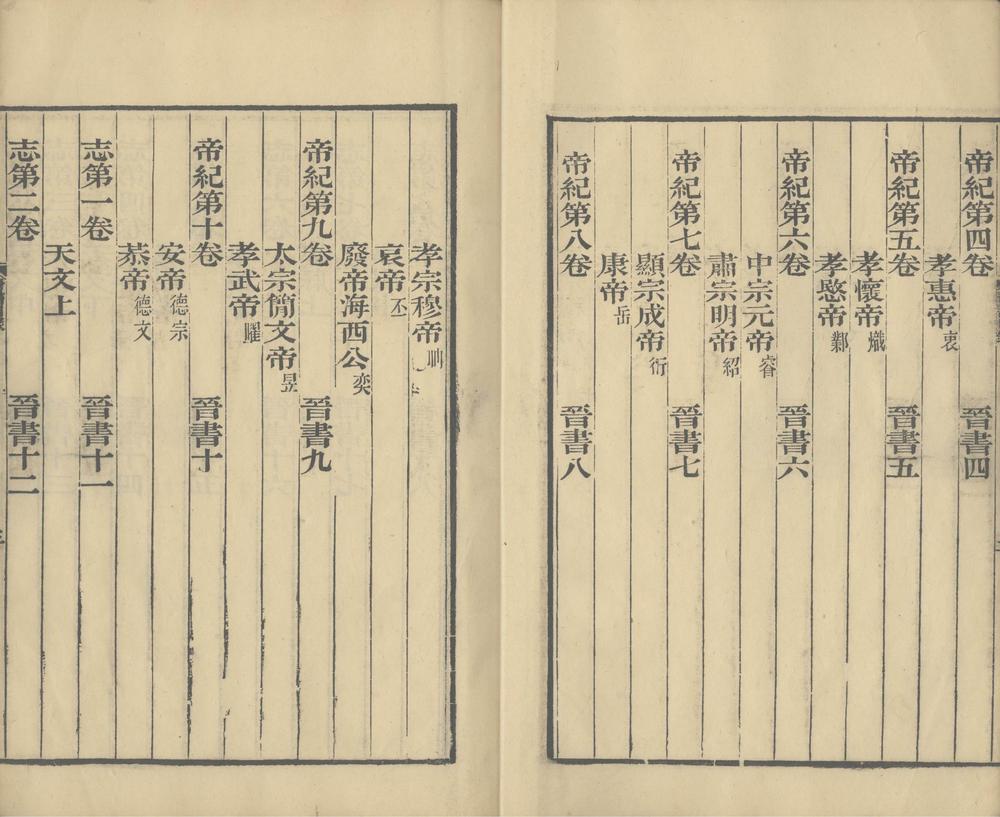 帝紀第四卷 晉書四
孝惠帝 衷
帝紀第五卷 晉書五
孝懷帝 熾
孝愍帝 鄴
帝紀第六卷 晉書六
中宗元帝 睿
肅宗明帝 紹
帝紀第七卷 晉書七
顯宗成帝 衍
康帝 岳
帝紀第八卷 晉書八
孝宗穆帝 聃
哀帝 丕
廢帝海西公 奕
帝紀第九卷 晉書九
太宗簡文帝 昱
孝武帝 曜
帝紀第十卷 晉書十
安帝 德宗
恭帝 德文
志第一卷 晉書十一
天文上
志第二卷 晉書十二